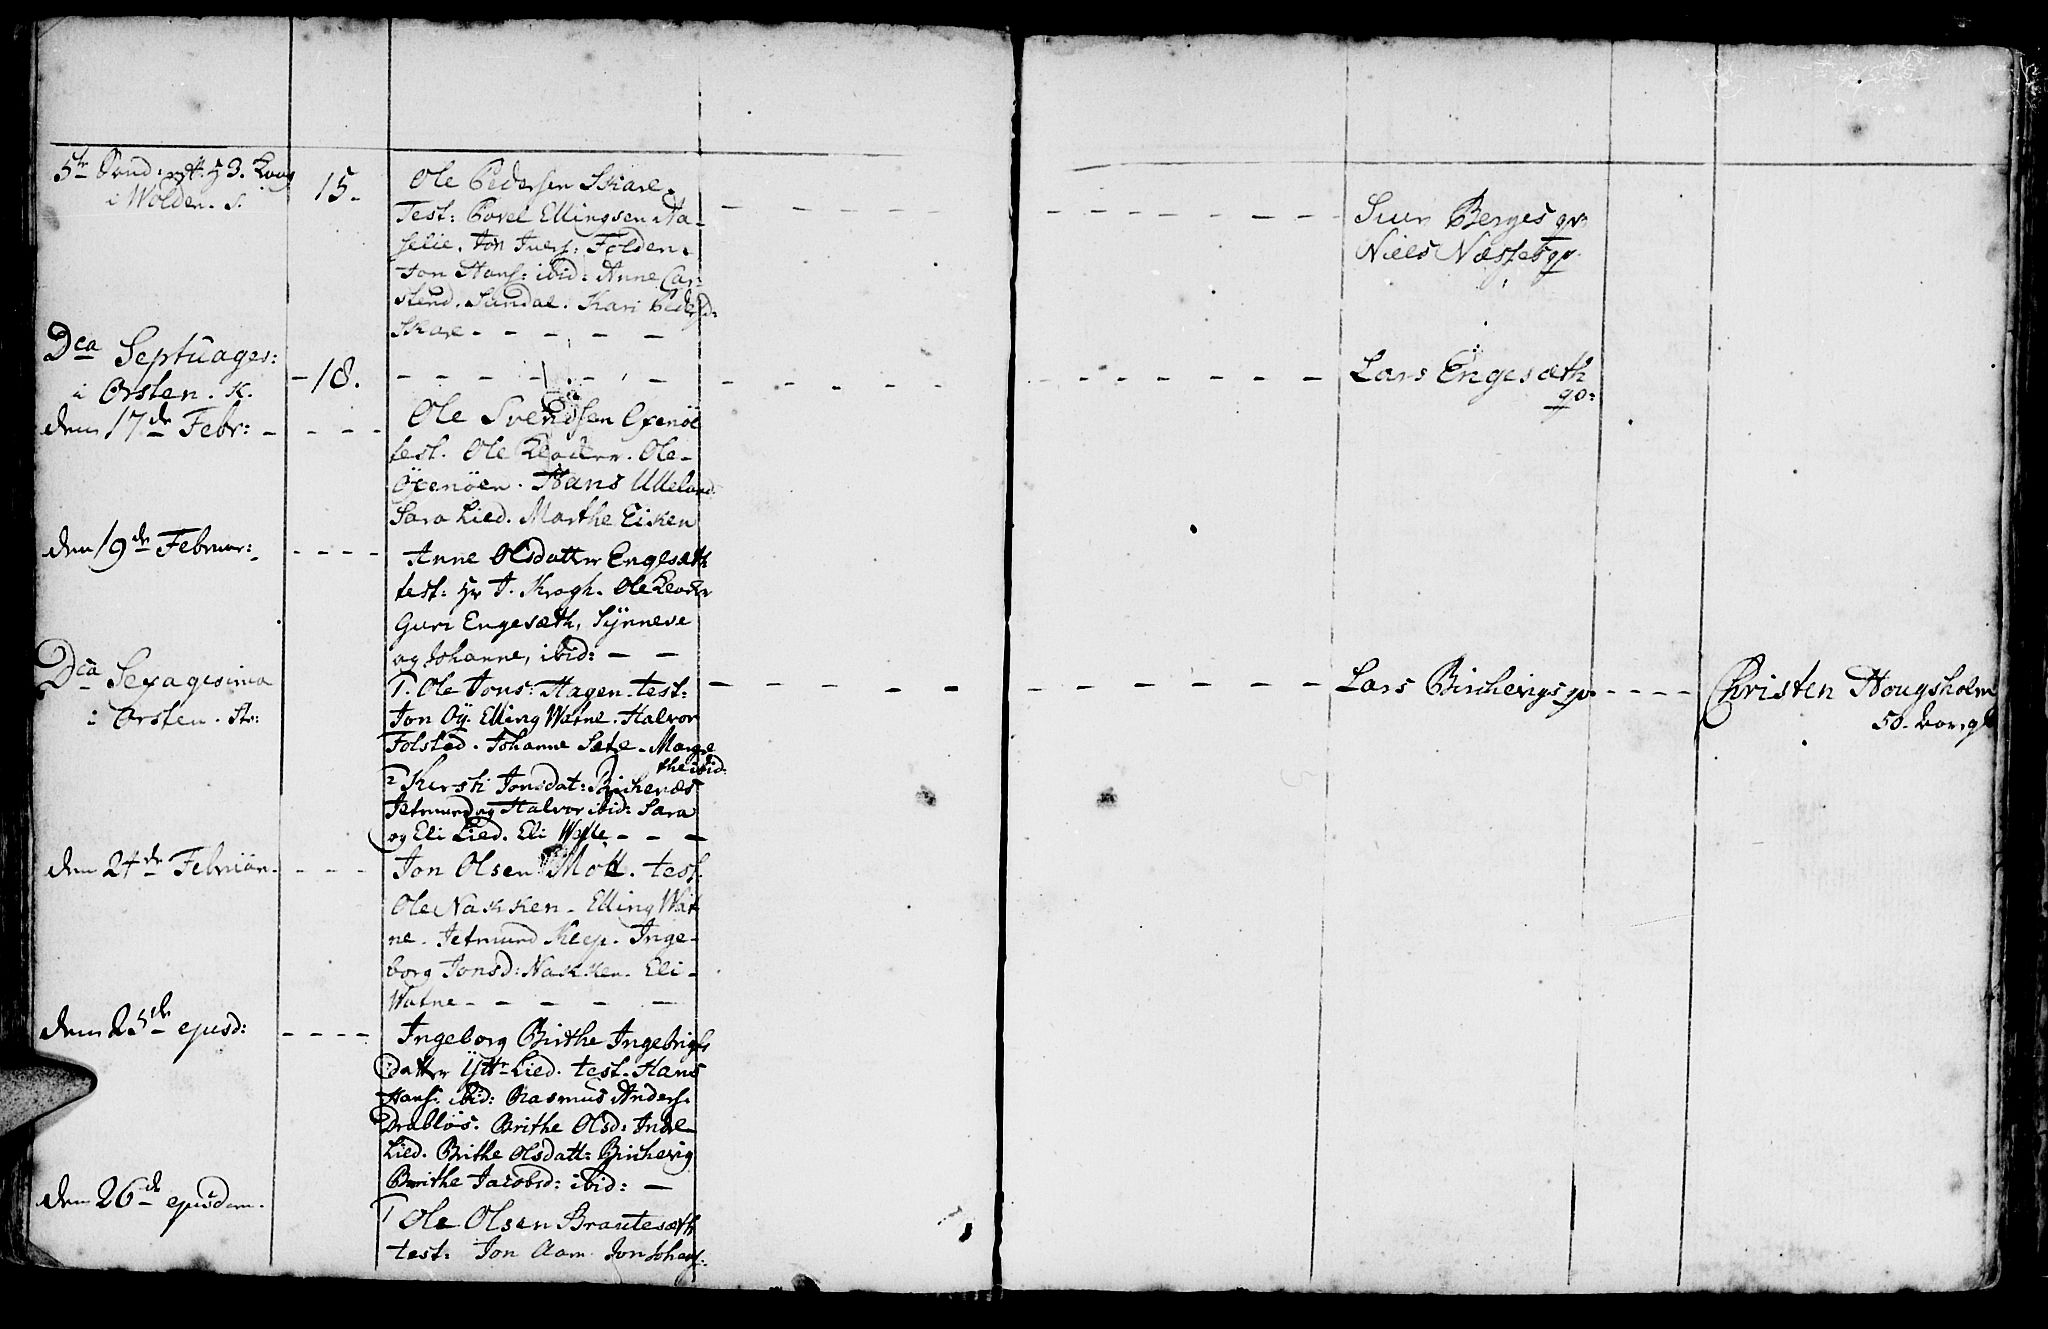 5te Sønd: ptt. H 3. Kong
i Wolden. S.
15.
Ole Pedersen Skare.
Test: Povel Ellingsen Aa-
selie. Jon Ivers: Folden.
Jon Hans: ibid: Anne Car-
stend. Sundal. Kari Pedersd:
Skare - - - - -
Siur Berges qv:
Niels Næsset qv.
Dca Septuages:
i Orsten. K.
- 18.
Lars Engesæth
qv:
den 17de Febr: -
Ole Svendsen Øxenöe
test. Ole Leodver. Ole
Öxenöen. Hans Ulleland.
Sara Lied. Marthe Eiken
den 19de Februar:
Anne Olsdatter Engesæth
test: Hr J. Krogh. Ole Leodver
Guri Engesæth, Synneve
og Johanne, ibid: - -
Dca Sexagesima
i Orsten. Str:
1. Ole Jons: Hagen. test:
Jon Oÿ. Elling Watne. Halvor
Folsted. Johanne Sæte. Margre
the ibid:
2 Kirsti Jonsdat: Birchenæs
Jetmund og Halvor ibid: Sara
og Eli Lied. Eli Watne - - -
Lars Birchevigs qv.
Christen Hougsholm
50.
den 24de Februar.
Jon Olsen Moll. test.
Ole Nakken. Elling Wat
ne. Jetmund Klep. Inge-
borg Jonsd: Nakken. Eli
Watne - - - - -
den 25de ejusd:
Ingeborg Birthe Ingebrigts
datter Ytt: Lied. test. Hans
Hans: ibid: Rasmus Anders:
Drablös. Brithe Olsd: Indre
Lied. Brithe Olsdatt: Birchevig
Brithe Jacobsd: ibid: -
den 26de ejusdem.
1 Ole Olsen Brautesæth
test: Jon Aam. Jon Johans: